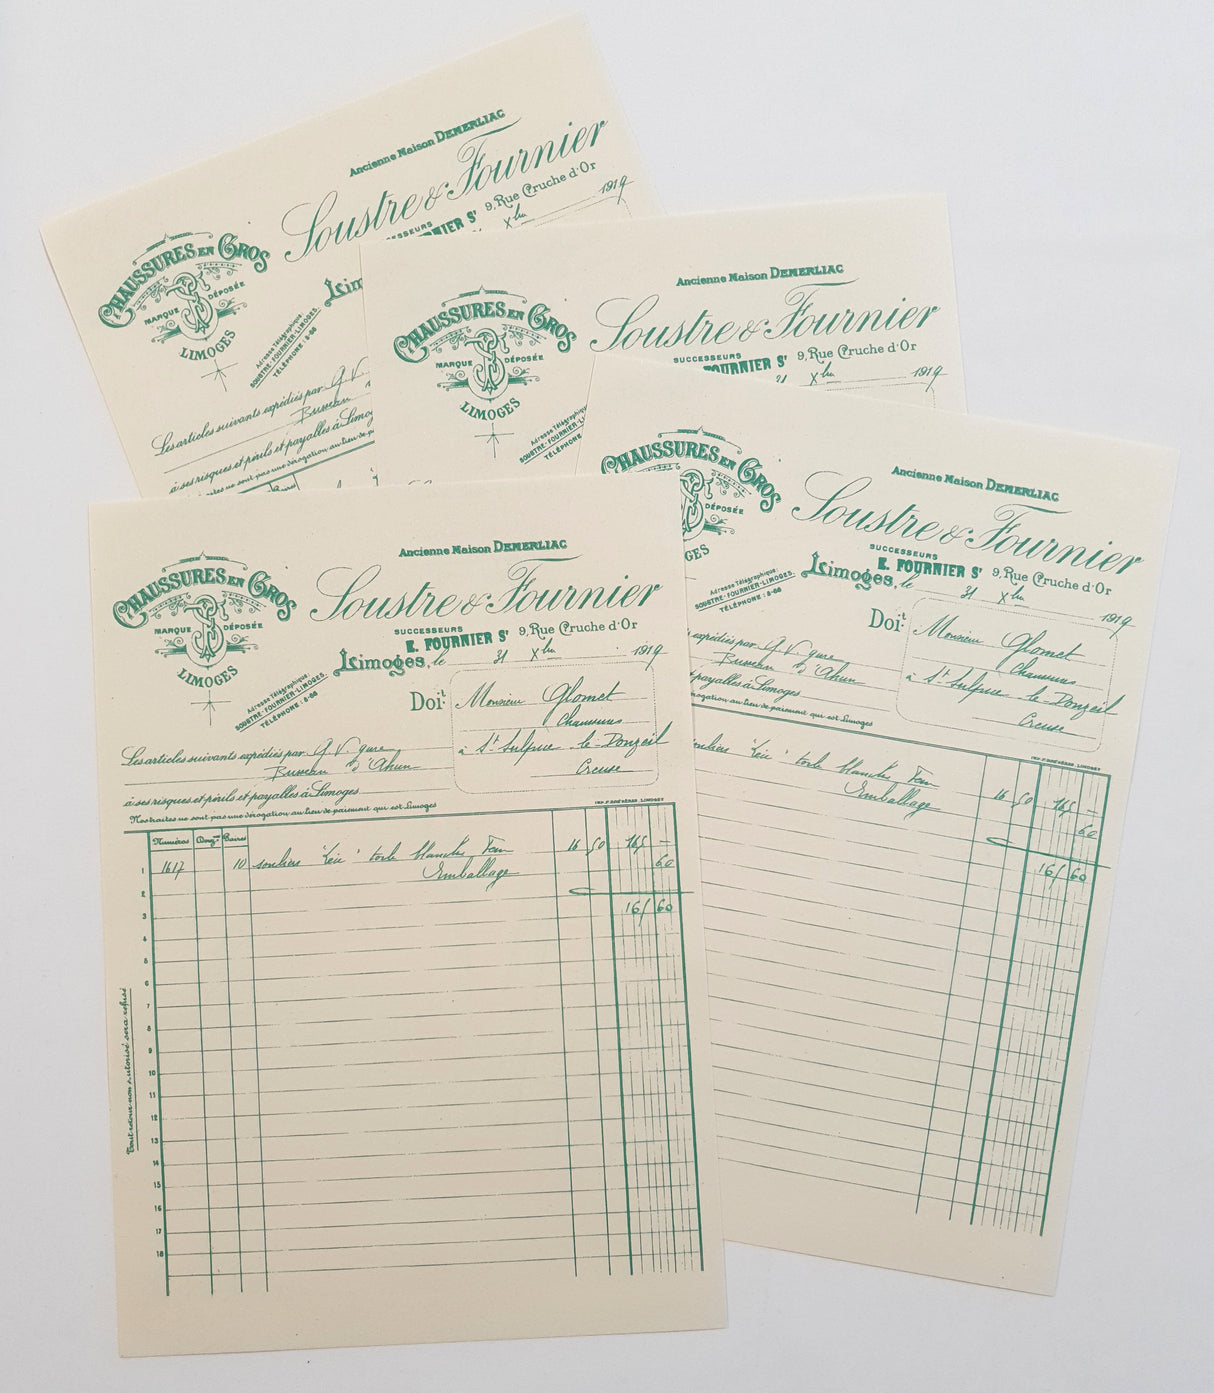 Ancienne Maison DEMERLIAC
Soustre & Fournier
SUCCESSEURS
FOURNIER Sr 9, Rue Cruche d'Or
Xbre 1919
CHAUSSURES EN GROS
MARQUE DÉPOSÉE
LIMOGES
Adresse Télégraphique:
SOUSTRE-FOURNIER-LIMOGES.
TÉLÉPHONE: 8-66
Les articles suivants expédiés par G. V.
Bureau
à ses risques et périls et payables à Limoges
Ancienne Maison DEMERLIAC
Soustre & Fournier
SUCCESSEURS
FOURNIER Sr 9, Rue Cruche d'Or
31 Xbre 1919
CHAUSSURES EN GROS
MARQUE DÉPOSÉE
LIMOGES
Adresse Télégraphique
SOUSTRE-FOURNIER-LI
TÉLÉPHONE
CHAUSSURES EN GROS
DÉPOSÉE
Ancienne Maison DEMERLIAC
Soustre & Fournier
SUCCESSEURS
E. FOURNIER Sr 9, Rue Cruche d'Or
Limoges, le 31 Xbre 1919
Adresse Télégraphique:
SOUSTRE-FOURNIER-LIMOGES.
TÉLÉPHONE: 8-66
Doit: Monsieur Glomet
Chaussures
à St Sulpice-le-Donzeil
Creuse
expédiés par G. V. gare
Bureau d'Ahun
payables à Limoges
dérogation au lieu de paiement qui est Limoges
toile blanche 16 50 165 —
Emballage 60
165 60
Ancienne Maison DEMERLIAC
Soustre & Fournier
SUCCESSEURS
E. FOURNIER Sr 9, Rue Cruche d'Or
CHAUSSURES EN GROS
MARQUE DÉPOSÉE
LIMOGES
Adresse Télégraphique:
SOUSTRE-FOURNIER-LIMOGES.
TÉLÉPHONE: 8-66
Limoges, le 31 Xbre 1919
Doit: Monsieur Glomet
Chaussures
à St Sulpice-le-Donzeil
Creuse
Les articles suivants expédiés par G. V. gare
Bureau d'Ahun
à ses risques et périls et payables à Limoges
Nos traites ne sont pas une dérogation au lieu de paiement qui est Limoges
Numéros Douz.nes Paires
1617 10 souliers toile blanche 16 50 165 —
Emballage 60
165 60
1
2
3
4
5
6
7
8
9
10
11
12
13
14
15
16
17
18
Tout retour non autorisé sera refusé